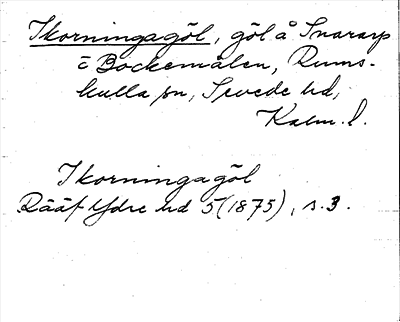 Ikorningagöl, göl å Snararp
i Bockemålen, Rums-
kulla sn, Sevede hd,
Kalm. l.
Ikorningagöl
Rääf Ydre hd 5 (1875), s. 3.